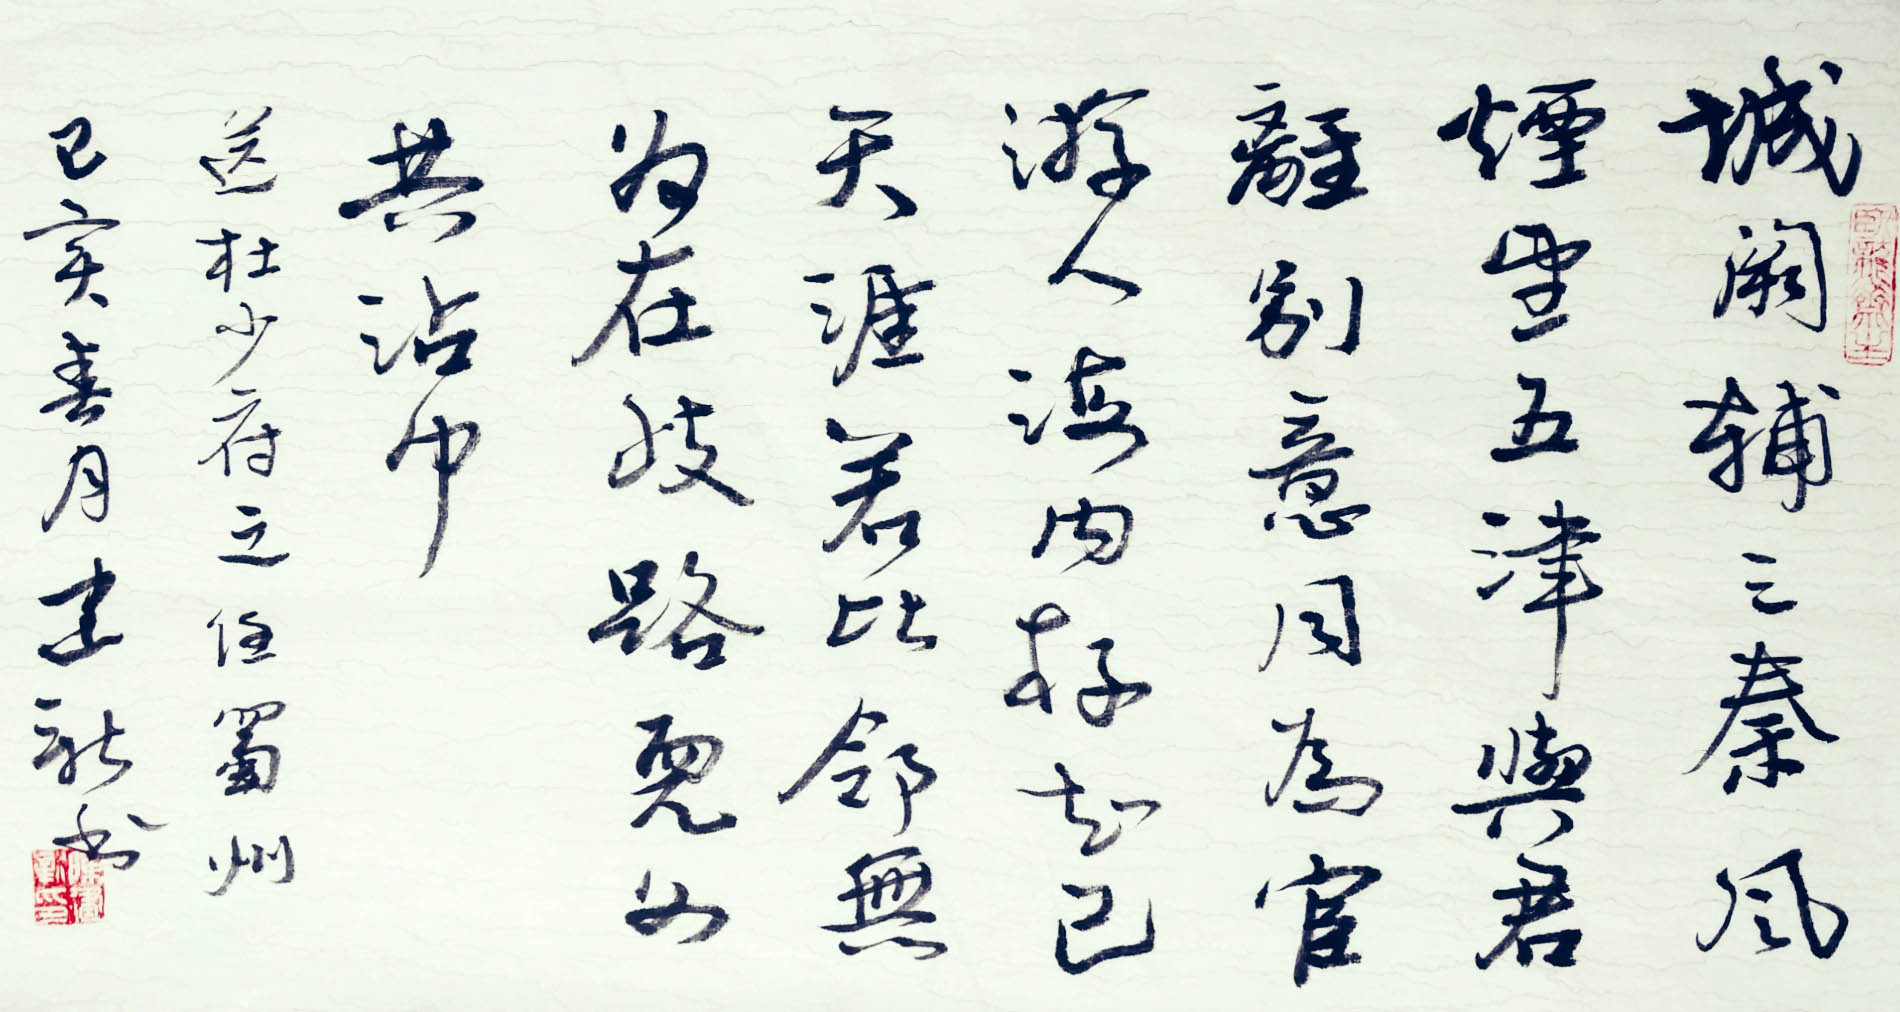 城阙辅三秦风
煙望五津與君
離别意同為宦
游人海内存知己
天涯若比邻無
为在歧路兒女
共沾巾
送杜少府之任蜀州
己亥春月建新书